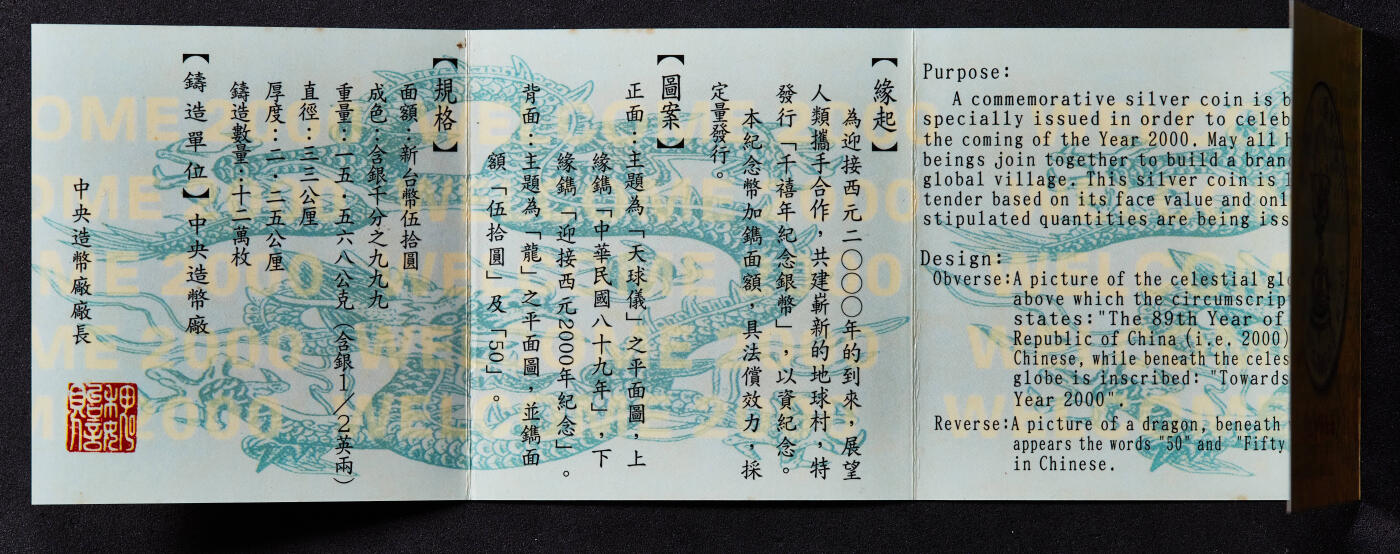 【緣起】
為迎接西元二〇〇〇年的到來，展望
人類攜手合作，共建嶄新的地球村，特
發行「千禧年紀念銀幣」，以資紀念。
本紀念幣加鐫面額，具法償效力，採
定量發行。
【圖案】
正面：主題為「天球儀」之平面圖，上
緣鐫「中華民國八十九年」，下
緣鐫「迎接西元2000年紀念」。
背面：主題為「龍」之平面圖，並鐫面
額「伍拾圓」及「50」。
【規格】
面額：新台幣伍拾圓
成色：含銀千分之九九九
重量：一五．五六八公克（含銀1／2英兩）
直徑：三三公厘
厚度：二．二五公厘
鑄造數量：十二萬枚
【鑄造單位】中央造幣廠
中央造幣廠廠長
Purpose:
A commemorative silver coin is b
specially issued in order to celeb
the coming of the Year 2000. May all h
beings join together to build a bran
global village. This silver coin is l
tender based on its face value and onl
stipulated quantities are being iss
Design:
Obverse:A picture of the celestial glo
above which the circumscrip
states:"The 89th Year of
Republic of China (i.e. 2000)
Chinese, while beneath the celes
globe is inscribed: "Towards
Year 2000".
Reverse:A picture of a dragon, beneath
appears the words "50" and "Fifty
in Chinese.